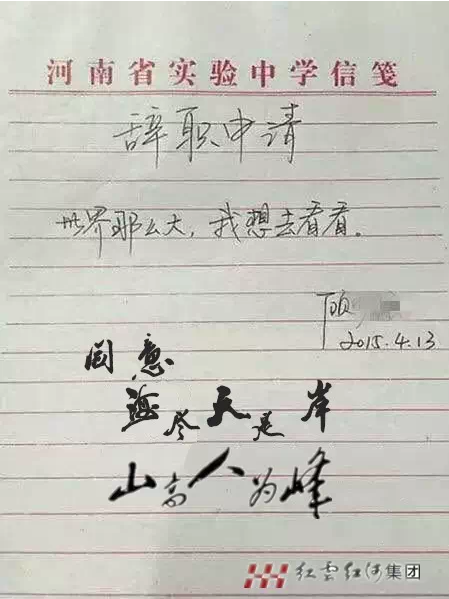 河南省实验中学信笺
辞职申请
世界那么大，我想去看看。
顾
2015.4.13
同意
海尽天是岸
山高人为峰
红云红河集团